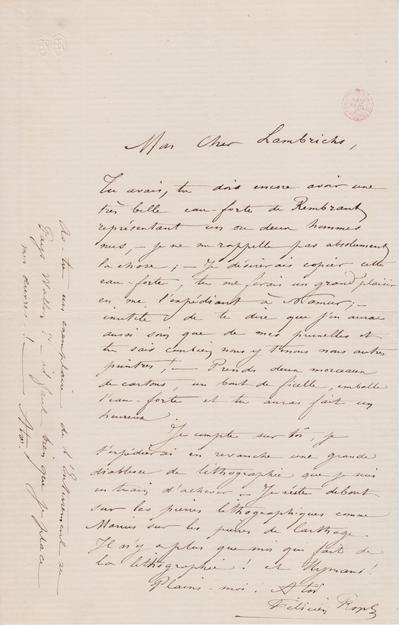 Mon Cher Lambrichs,
Tu avais, tu dois encore avoir une
très belle eau-forte de Rembrant
représentant un ou deux hommes
nus, - je ne me rappelle pas absolument
la chose; - Je désirerais copier cette
eau-forte, tu me ferais un grand plaisir
en me l'expédiant à Namur; -
inutile de te dire que j'en aurai
aussi soin que de mes prunelles et
tu sais combien nous y tenons nous autres
peintres! - Prends deux morceaux
de cartons, un bout de ficelle, emballe
l'eau-forte et tu auras fait un
heureux
Je compte sur toi, je
t'expédierai en revanche une grande
diablesse de lithographie que je suis
en train d'achever - Je reste debout
sur les pierres lithographiques comme
Marius sur les pierres de Carthage.
Il n'y a plus que moi qui fait de
la lithographie! et Hymans!
Plains-moi! A toi
Félicien Rops
As-tu un exemplaire de l'Enterrement au
Pays Wallon? - il faut bien que je place
mes œuvres! - A toi.